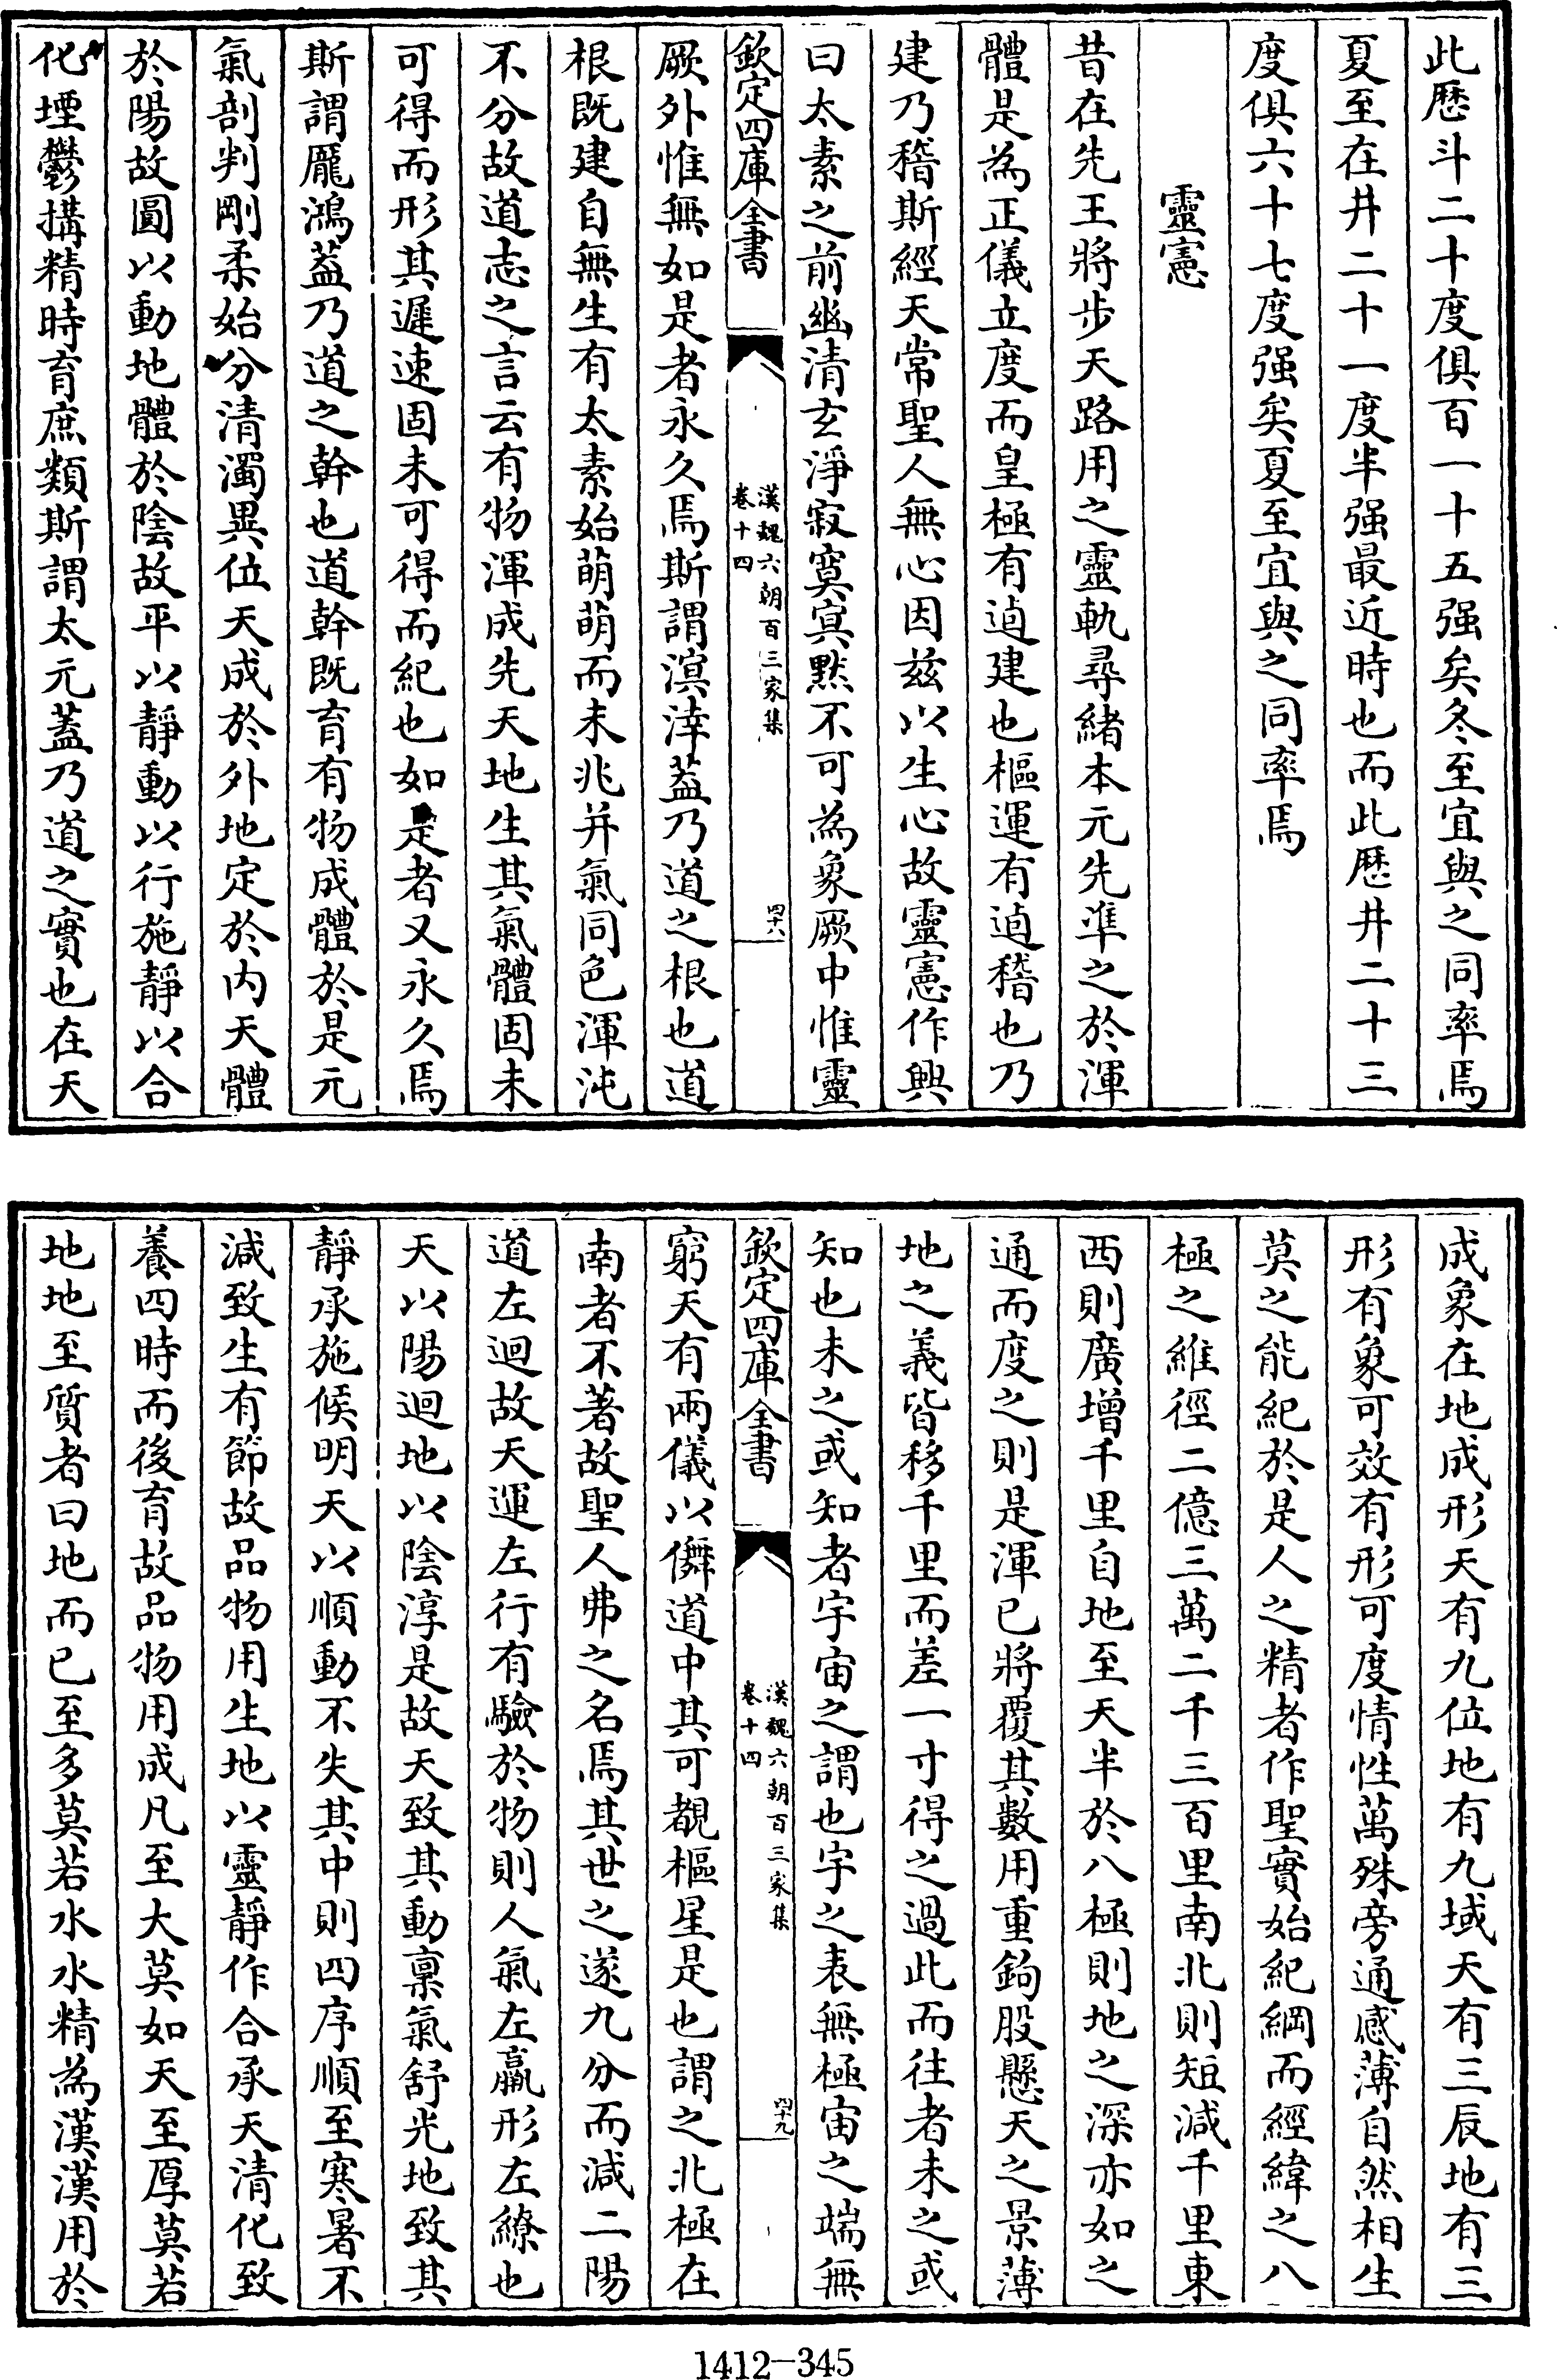 此歴斗二十度俱百一十五强矣冬至宜與之同率焉
夏至在井二十一度半强最近時也而此歴井二十三
度俱六十七度强矣夏至宜與之同率焉
靈憲
昔在先王將步天路用之靈軌尋緒本元先凖之於渾
體是為正儀立度而皇極有逌建也樞運有逌稽也乃
建乃稽斯經天常聖人無心因兹以生心故靈憲作興
曰太素之前幽清玄淨寂寞冥默不可為象厥中惟靈
欽定四庫全書
漢魏六朝百三家集
卷十四
四十八
厥外惟無如是者永久焉斯謂溟涬葢乃道之根也道
根既建自無生有太素始萌萌而未兆并氣同色渾沌
不分故道志之言云有物渾成先天地生其氣體固未
可得而形其遲速固未可得而紀也如是者又永久焉
斯謂厖鴻葢乃道之幹也道幹既育有物成體於是元
氣剖判剛柔始分清濁異位天成於外地定於内天體
於陽故圓以動地體於陰故平以靜動以行施靜以合
化堙鬱搆精時育庶類斯謂太元蓋乃道之實也在天
成象在地成形天有九位地有九域天有三辰地有三
形有象可效有形可度情性萬殊旁通感薄自然相生
莫之能紀於是人之精者作聖實始紀綱而經緯之八
極之維徑二億三萬二千三百里南北則短減千里東
西則廣增千里自地至天半於八極則地之深亦如之
通而度之則是渾已將覆其數用重鉤股懸天之景薄
地之義皆移千里而差一寸得之過此而往者未之或
知也未之或知者宇宙之謂也宇之表無極宙之端無
欽定四庫全書
漢魏六朝百三家集
卷十四
四十九
窮天有兩儀以儛道中其可覩樞星是也謂之北極在
南者不著故聖人弗之名焉其世之遂九分而減二陽
道左迴故天運左行有驗於物則人氣左羸形左繚也
天以陽迴地以陰淳是故天致其動稟氣舒光地致其
靜承施候明天以順動不失其中則四序順至寒暑不
減致生有節故品物用生地以靈靜作合承天清化致
養四時而後育故品物用成凡至大莫如天至厚莫若
地地至質者曰地而已至多莫若水水精為漢漢用於
1412-345